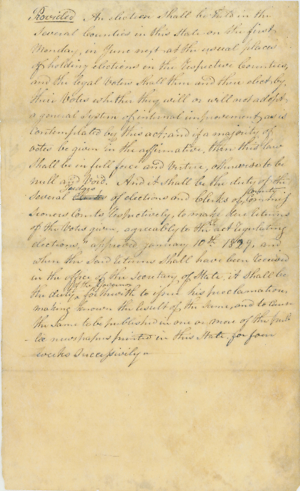 Provided An election shall be held in the
Several Counties in this State on the first
Monday, in June next at the usual places
of holding elections in the respective Counties,
and the legal Voters shall then and there elect, by
their Votes whether they will or will not adopt
a general System of internal improvement, as is
contemplated by this act; and if a majority of
votes be given in the affirmative, then this law
shall be in full force and Virtue, otherwise to be
null and Void. And it shall be the duty of the
Judges
Several of elections and Clerks of County
Courts respectively, to make the returns
of the Votes given, agreeably to the act regulating
elections, approved January 10th 1829, and
when the said returns shall have been received
in the office of the Secretary of State, it shall be
of the Governor
the duty forthwith to issue his proclamation,
making known the result of the same, and to cause
the same to be published in one or more of the pub-
lic newspapers printed in this State, for four
weeks Successively